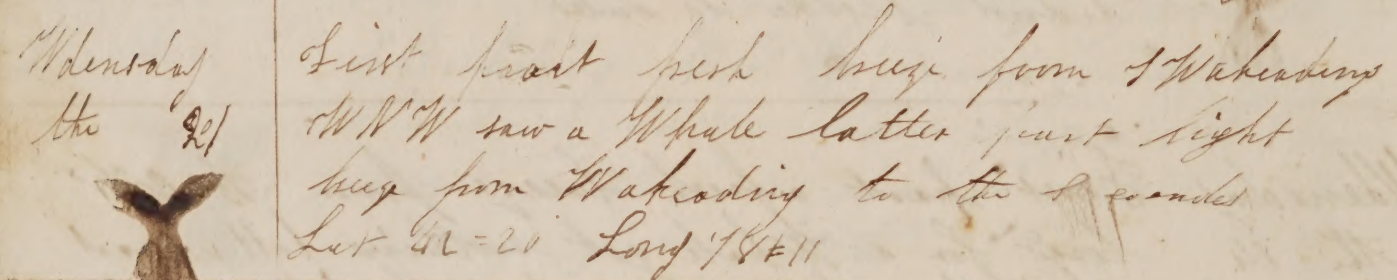 Wdensday First part fresh breeze from S W aheading
the 21 W N W saw a Whale latter part light
breeze from W aheading to the S
Lat 42=20 Long 78=11